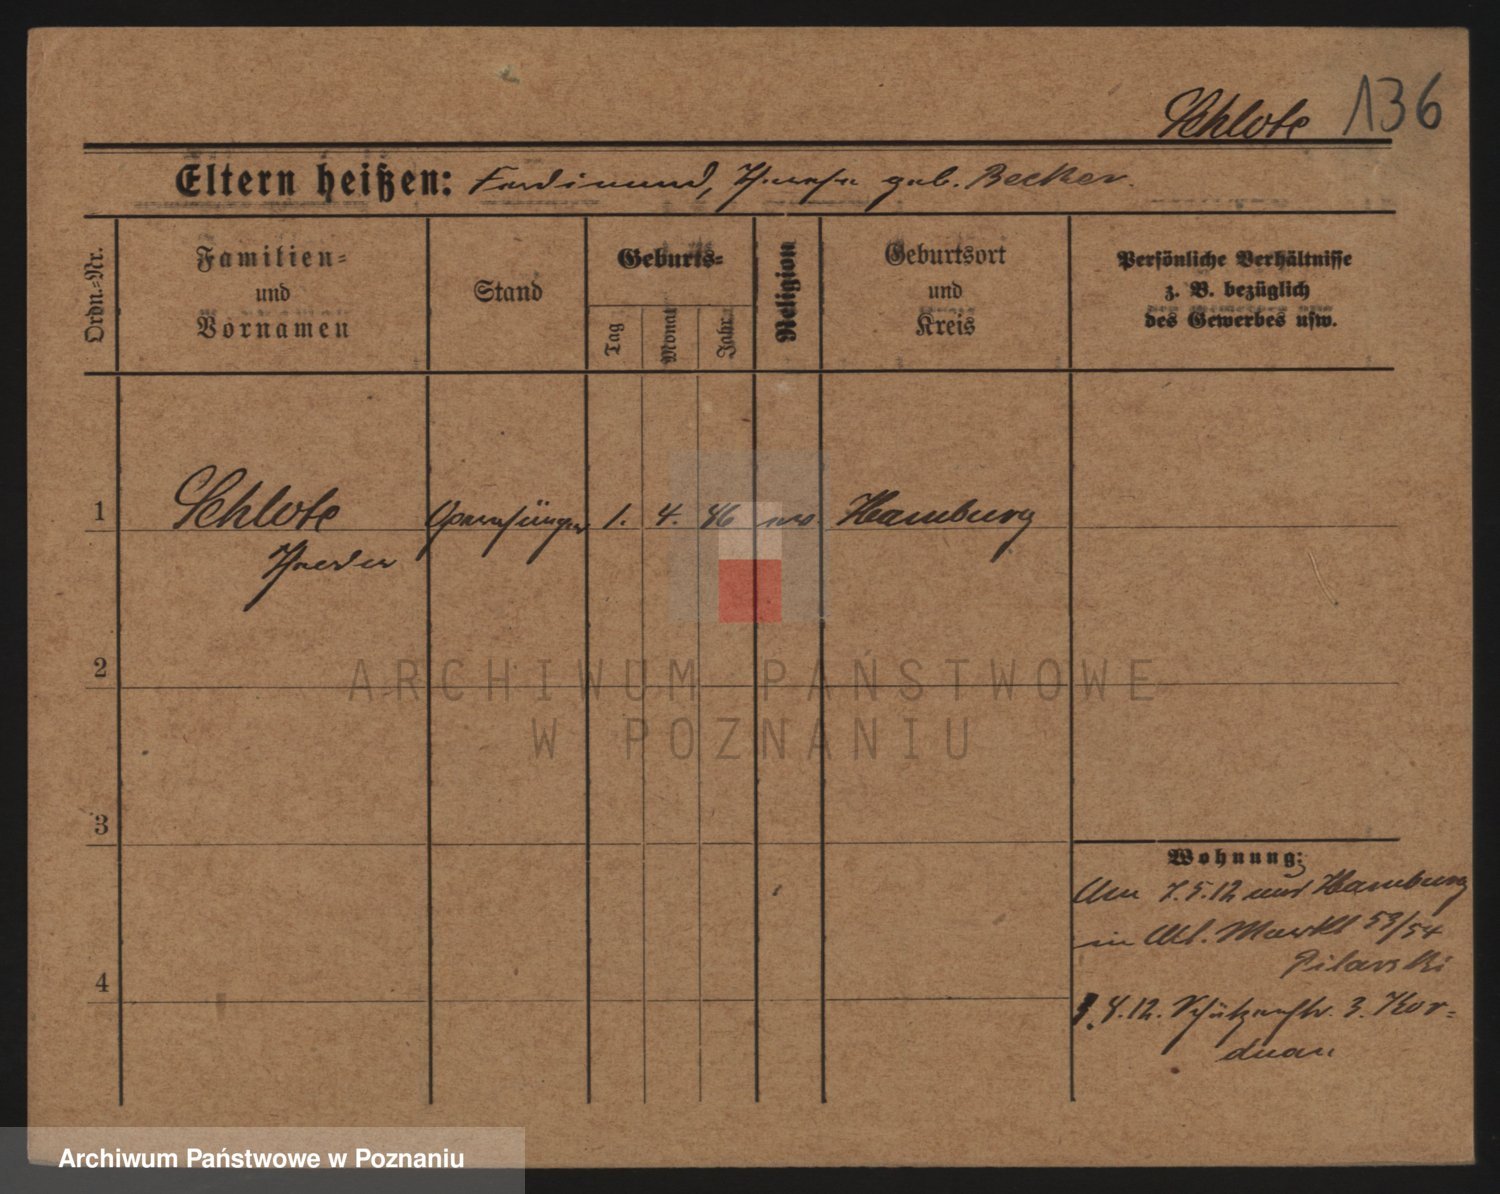 Schlote 136
Eltern heißen: Ferdinand, geb. Becker.
Ordn.-Nr.
Familien-
und
Vornamen
Stand
Geburts-
Tag
Monat
Jahr
Religion
Geburtsort
und
Kreis
Persönliche Verhältnisse
z. B. bezüglich
des Gewerbes usw.
1 Schlote Opernsänger 1. 4. 86 Hamburg
2
3
4
Wohnung:
Am 7.5.12 aus Hamburg
in Alt. Markt 53/54
Pilarski
8.12. Schützenstr. 3. Kor-
duan
ARCHIWUM PAŃSTWOWE
W POZNANIU
Archiwum Państwowe w Poznaniu